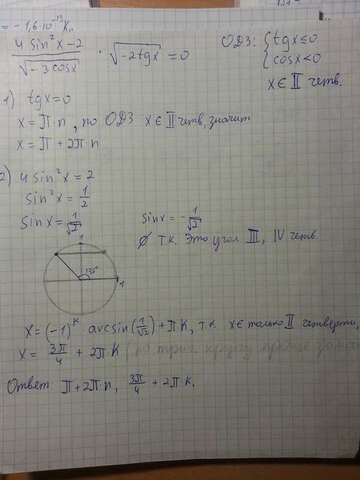 = -1,6·10⁻¹³ Кл
(4 sin²x - 2) / √(-3cosx) · √(-2tgx) = 0
ОДЗ: { tgx ≤ 0
cosx < 0
x ∈ II четв.
1) tgx = 0
x = πn, по ОДЗ x ∈ II четв, значит
x = π + 2πn
2) 4 sin²x = 2
sin²x = 1/2
sinx = 1/√2
sinx = -1/√2
∅ т.к. Это угол III, IV четв.
135°
1
x = (-1)ᵏ arcsin(1/√2) + πk, т.к. x ∈ только II четверти,
x = 3π/4 + 2πk (по триг кругу
Ответ π + 2πn, 3π/4 + 2πk.